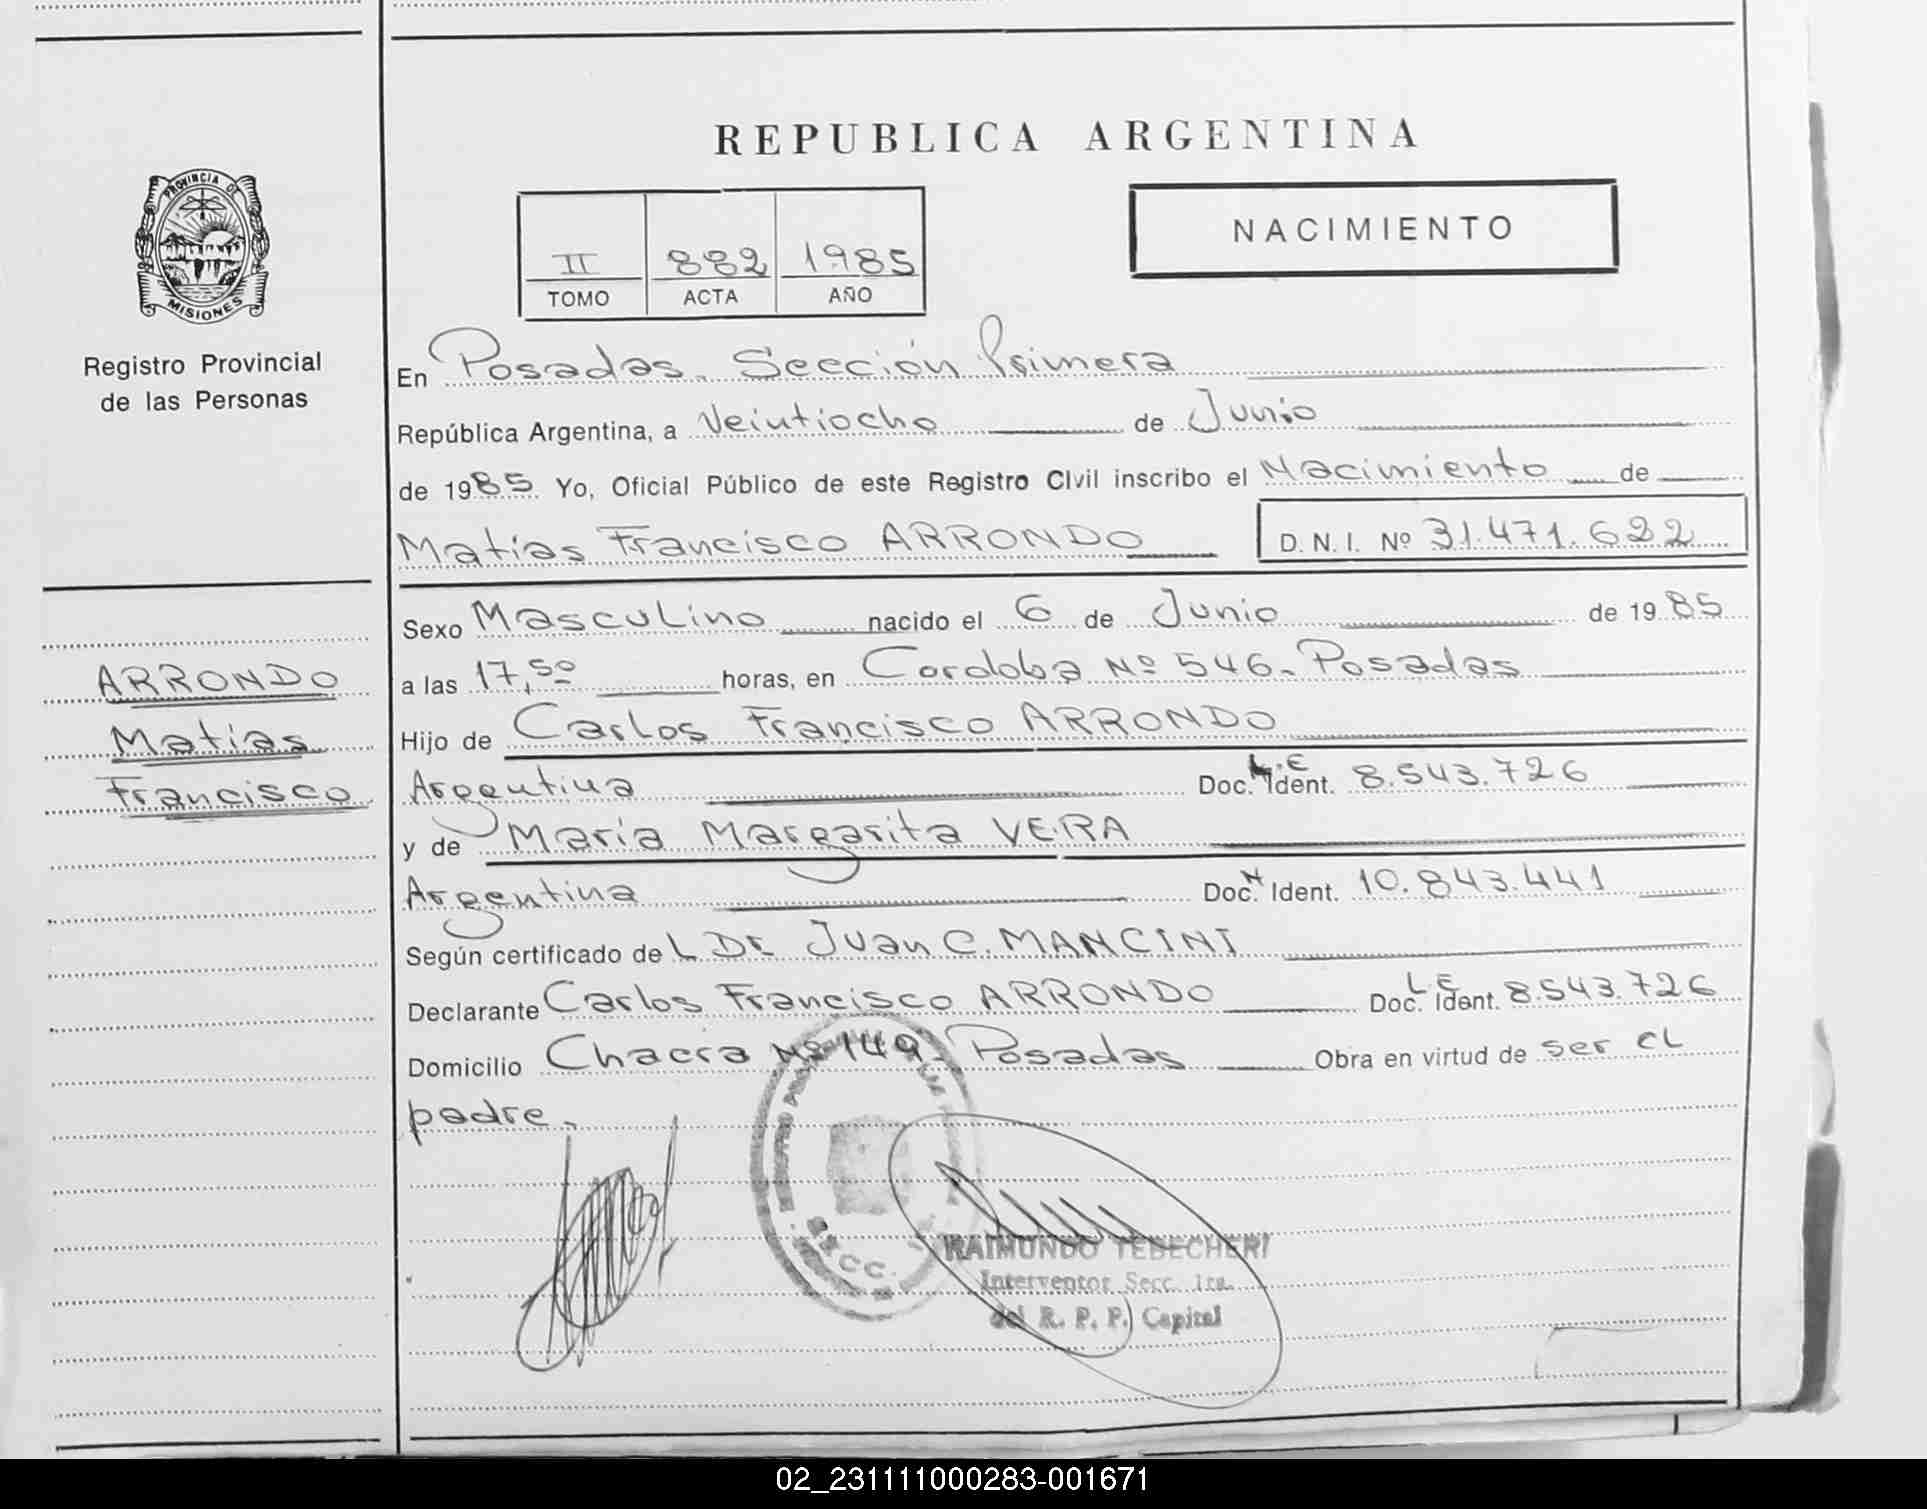 REPUBLICA ARGENTINA
PROVINCIA DE
MISIONES
Registro Provincial
de las Personas
II 882 1985
TOMO ACTA AÑO
NACIMIENTO
En Posadas. Sección Primera
República Argentina, a Veintiocho de Junio
de 1985 Yo, Oficial Público de este Registro Civil inscribo el Nacimiento de
Matías Francisco ARRONDO D.N.I. Nº 31.471.622
Sexo Masculino nacido el 6 de Junio de 1985
ARRONDO
Matías
Francisco
a las 17,50 horas, en Cordoba Nº 546. Posadas
Hijo de Carlos Francisco ARRONDO
Argentina Doc. L.E Ident. 8.543.726
y de María Margarita VERA
Argentina Doc. Ident. 10.843.441
Según certificado de L DE Juan C. MANCINI
Declarante Carlos Francisco ARRONDO Doc. L E Ident. 8.543.726
Domicilio Chacra Nº 149. Posadas Obra en virtud de ser el
padre.
RAIMUNDO TEBECHERI
Interventor Secc. 1ra.
del R. P. P. Capital
02_231111000283-001671